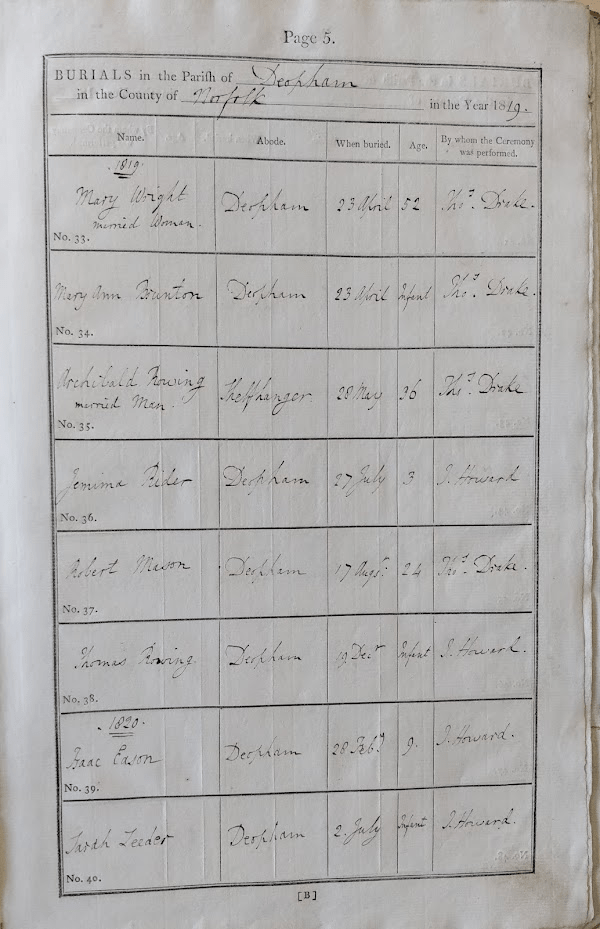 Page 5.
BURIALS in the Parish of Deopham
in the County of Norfolk in the Year 1819.
Name. Abode. When buried. Age. By whom the Ceremony was performed.
1819.
Mary Wright Deopham 23 April 52 Thos. Drake.
married Woman.
No. 33.
Mary Ann Brunton Deopham 23 April Infant Thos. Drake.
No. 34.
Archibald Rowing Shelfhanger. 28 May 36 Thos. Drake
married Man.
No. 35.
Jemima Rider Deopham 27 July 3 J. Howard
No. 36.
Robert Mason Deopham 17 Augst. 24 Thos. Drake.
No. 37.
Thomas Rowing Deopham 19 Decr. Infant J. Howard.
No. 38.
1820.
Isaac Eason Deopham 28 Feby. 9. J. Howard.
No. 39.
Sarah Leeder Deopham 2. July Infant J. Howard.
No. 40.
[B]